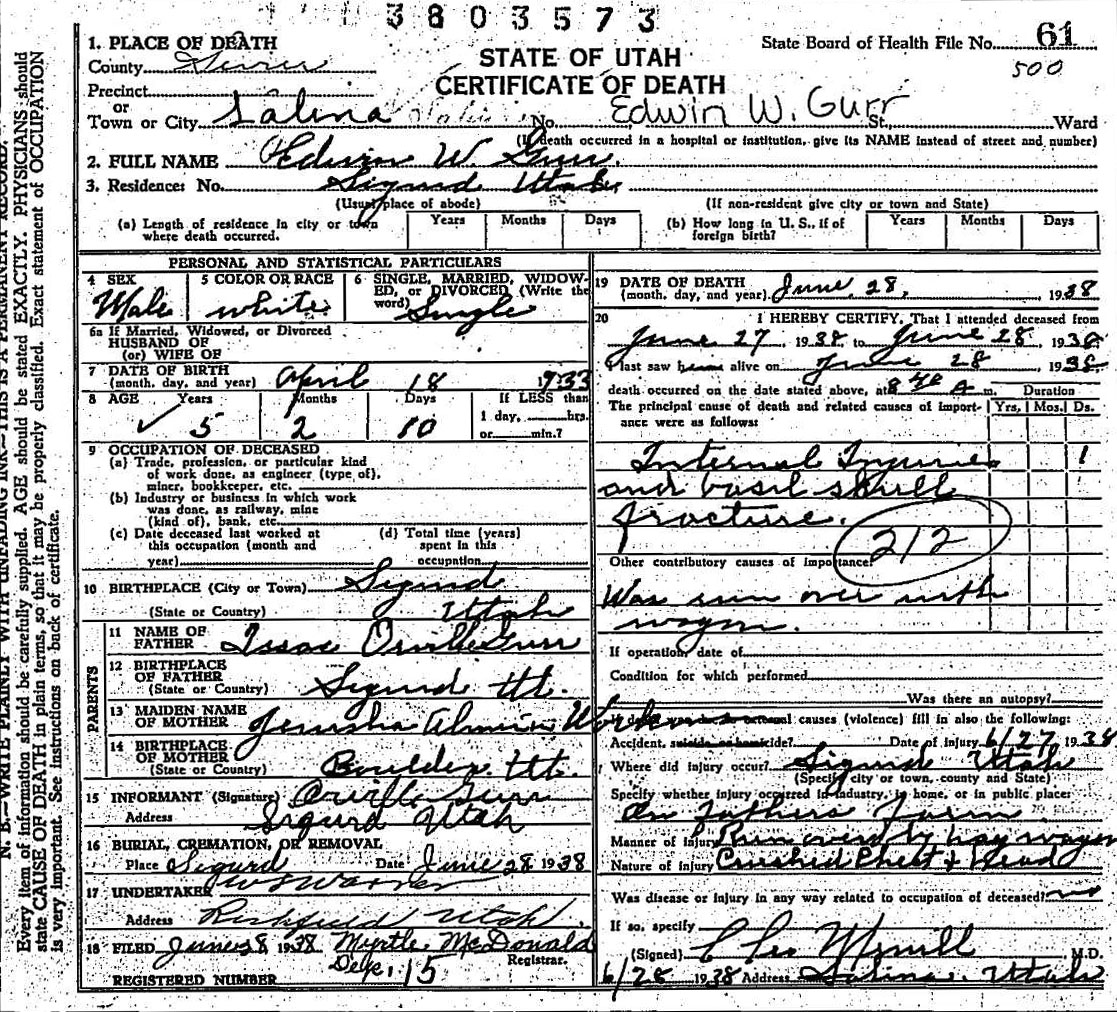 3803573
1. PLACE OF DEATH
County Sevier
Precinct
or
Town or City Salina
STATE OF UTAH
CERTIFICATE OF DEATH
State Board of Health File No. 61
500
No. Edwin W. Gurr St. Ward
(If death occurred in a hospital or institution, give its NAME instead of street and number)
2. FULL NAME Edwin W Gurr.
3. Residence: No. Sigurd Utah
(Usual place of abode) (If non-resident give city or town and State)
(a) Length of residence in city or town where death occurred. Years Months Days
(b) How long in U. S., if of foreign birth? Years Months Days
PERSONAL AND STATISTICAL PARTICULARS
4 SEX Male
5 COLOR OR RACE white
6 SINGLE, MARRIED, WIDOWED, or DIVORCED (Write the word) Single
6a If Married, Widowed, or Divorced
HUSBAND OF
(or) WIFE OF
7 DATE OF BIRTH
(month, day, and year) April 18 1933
8 AGE Years Months Days If LESS than
✓ 5 2 10 1 day, hrs.
or min.?
9 OCCUPATION OF DECEASED
(a) Trade, profession, or particular kind
of work done, as engineer (type of),
miner, bookkeeper, etc.
(b) Industry or business in which work
was done, as railway, mine
(kind of), bank, etc.
(c) Date deceased last worked at
this occupation (month and
year)
(d) Total time (years)
spent in this
occupation
10 BIRTHPLACE (City or Town) Sigurd
(State or Country) Utah
PARENTS
11 NAME OF
FATHER Issac Orville Gurr
12 BIRTHPLACE
OF FATHER
(State or Country) Sigurd Ut.
13 MAIDEN NAME
OF MOTHER Jerusha Almira
14 BIRTHPLACE
OF MOTHER
(State or Country) Boulder Ut.
15 INFORMANT (Signature) Orville Gurr
Address Sigurd Utah
16 BURIAL, CREMATION, OR REMOVAL
Place Sigurd Date June 28 1938
17 UNDERTAKER
Address Richfield Utah
18 FILED June 28 1938 Myrtle McDonald
Registrar.
Dep.
REGISTERED NUMBER 15
19 DATE OF DEATH
(month, day, and year) June 28, 1938
20 I HEREBY CERTIFY, That I attended deceased from
June 27 1938 to June 28, 1938
I last saw him alive on June 28 1938
death occurred on the date stated above, at 8 40 A m. Duration
The principal cause of death and related causes of importance were as follows: Yrs. Mos. Ds.
Internal Injuries 1
and basil skull
fracture.
212
Other contributory causes of importance:
Was run over with
wagon.
If operation, date of
Condition for which performed
Was there an autopsy?
causes (violence) fill in also the following:
Accident, suicide or homicide? Date of injury 6/27 1938
Where did injury occur? Sigurd Utah
(Specify city or town, county and State)
Specify whether injury occurred in industry, in home, or in public place:
On Fathers Farm
Manner of injury Run over by hay wagon
Nature of injury Crushed Chest & Head
Was disease or injury in any way related to occupation of deceased? no
If so, specify
(Signed) M.D.
6/28 1938 Address Salina Utah
N. B.—WRITE PLAINLY WITH UNFADING INK—THIS IS A PERMANENT RECORD.
Every item of information should be carefully supplied. AGE should be stated EXACTLY. PHYSICIANS should
state CAUSE OF DEATH in plain terms, so that it may be properly classified. Exact statement of OCCUPATION
is very important. See instructions on back of certificate.